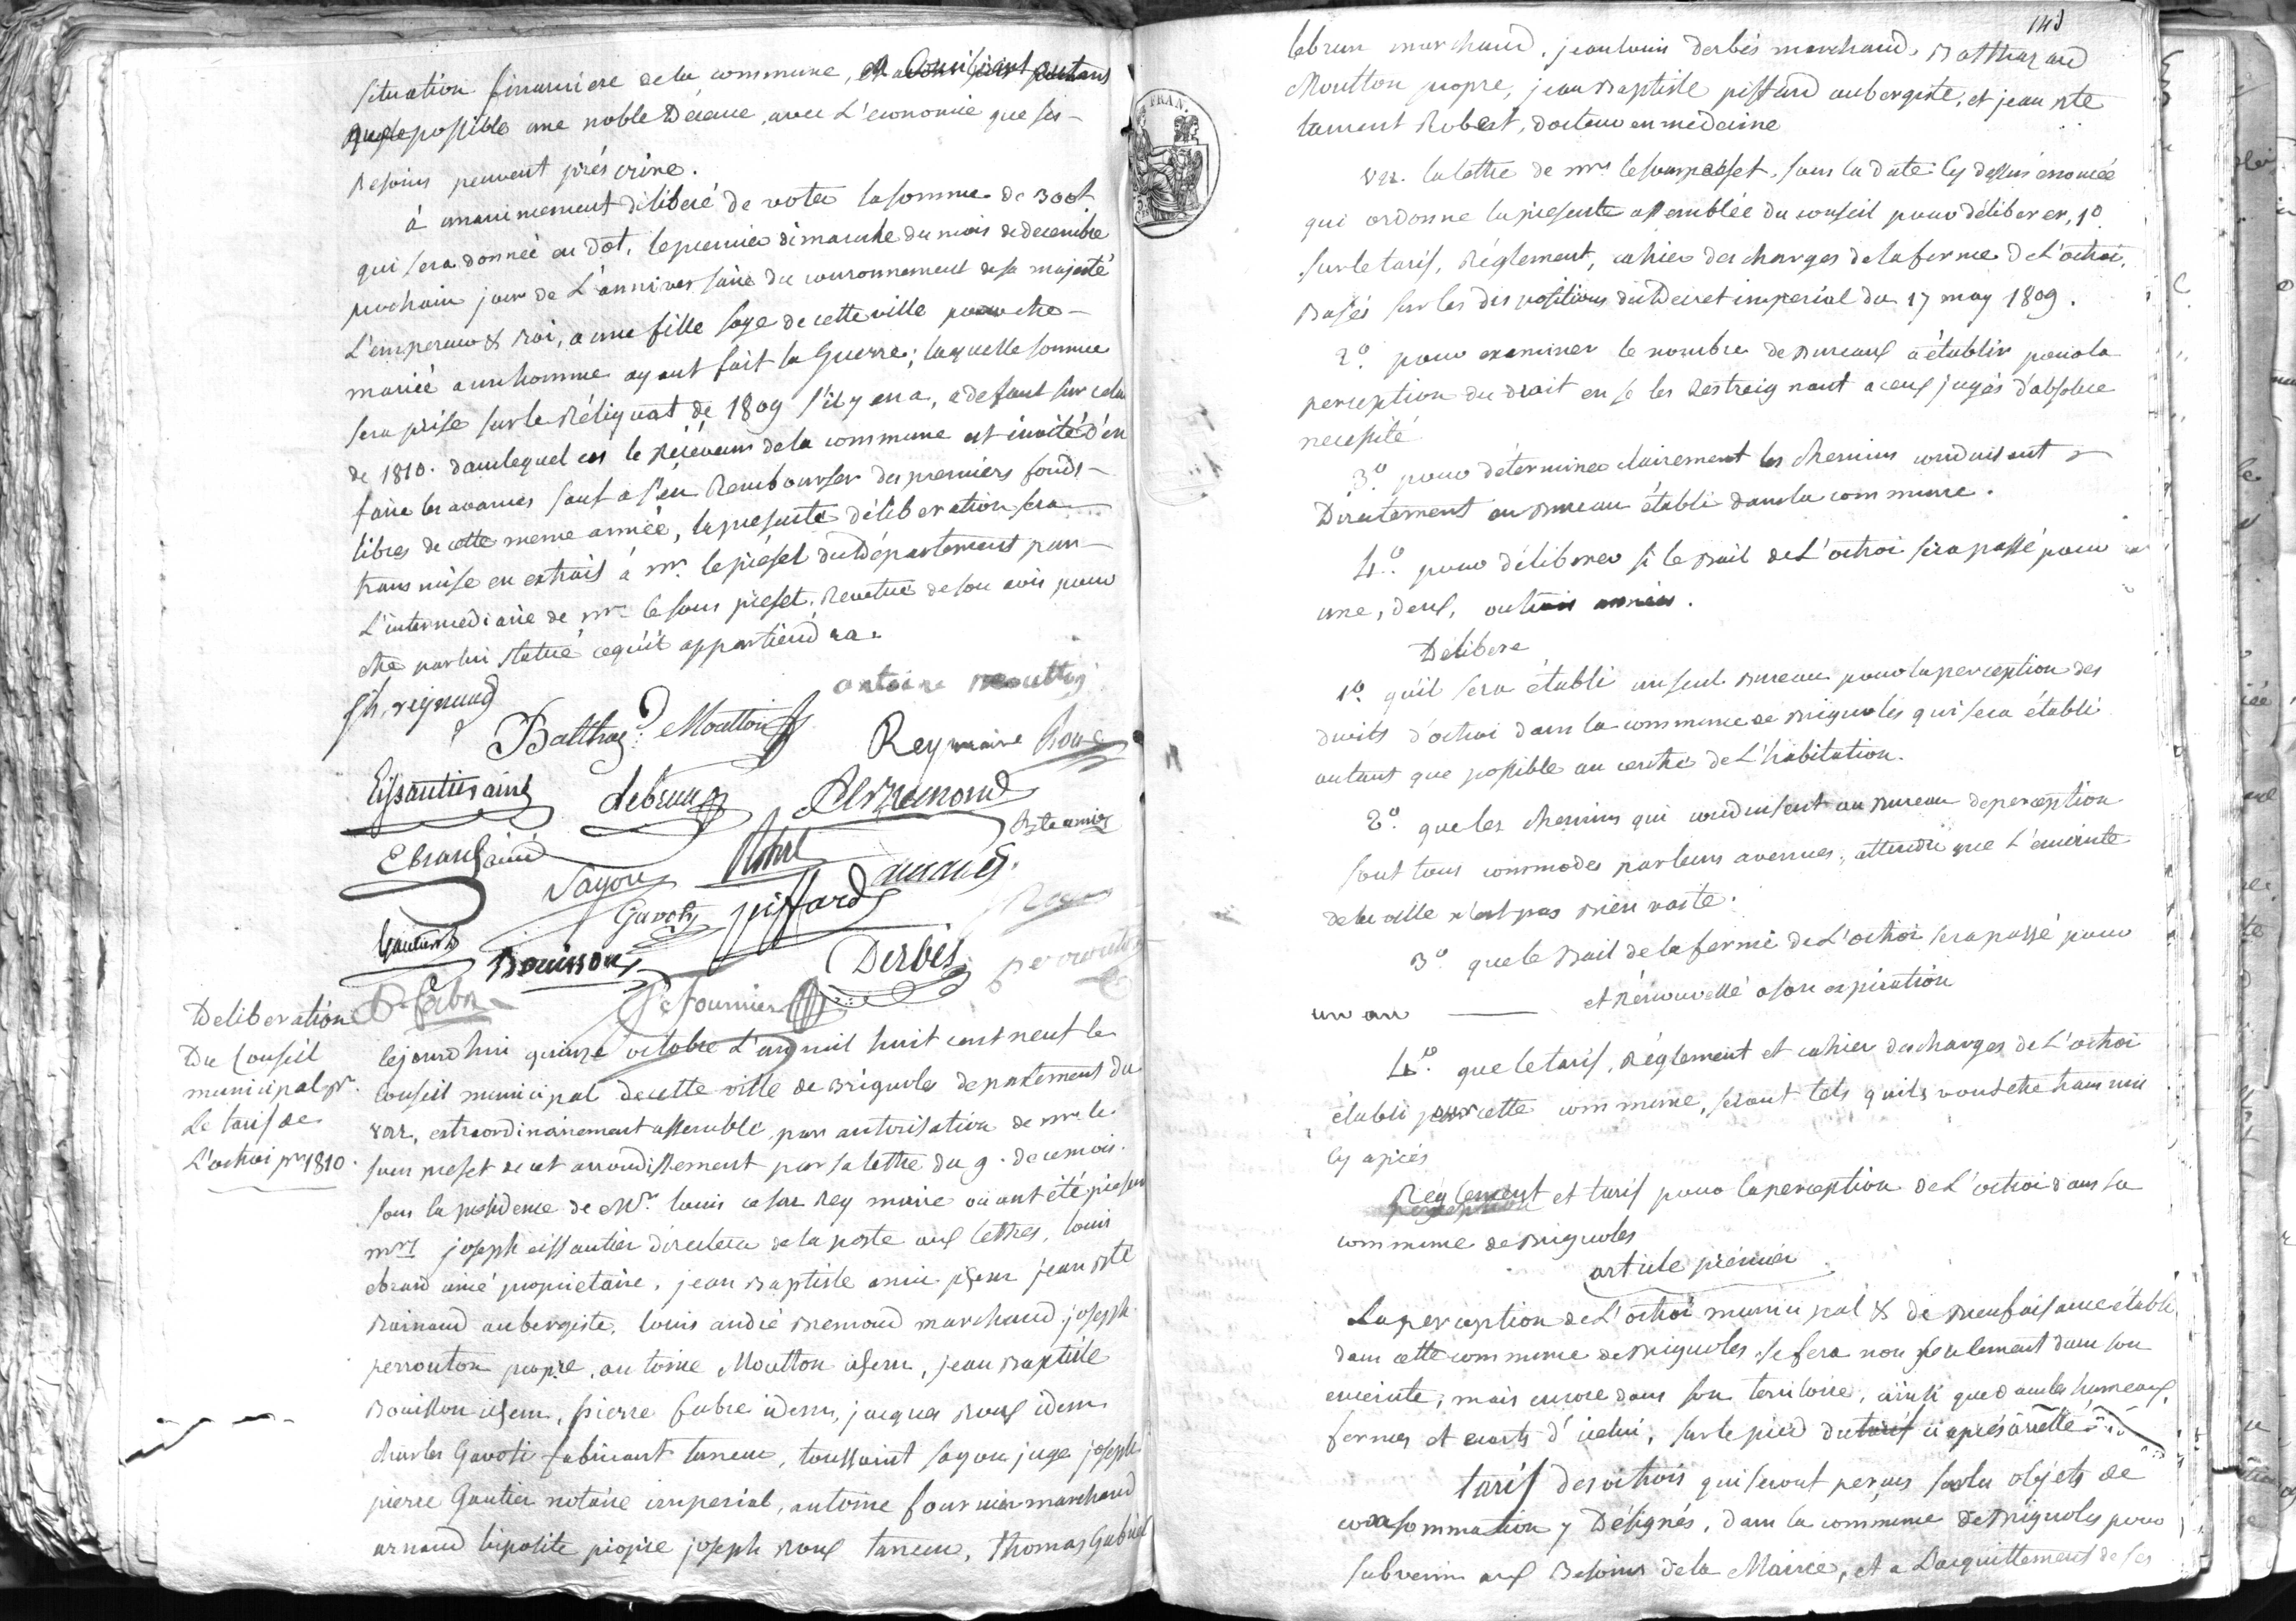 situation financiere de la commune,
possible une noble Décence, avec L'économie que ses
Besoins peuvent préscrire.
à unanimement délibéré de voter la somme de 300f
qui sera donnée en dot, le premier dimanche du mois de decembre
prochain jour de L'anniversaire du couronnement de sa majesté
L'empereur & Roi, a une fille sage de cette ville pour etre
mariée a un homme ayant fait la Guerre; laquelle somme
sera prise sur le Réliquat de 1809 s'il y en a, a defaut sur celui
de 1810. dans lequel cas le Réceveur de la commune est invité d'en
faire les avances sauf à s'en Rembourser des premiers fonds
libres de cette meme année, la presente déliberation sera
transmise en extrait à mr. le préfet du Département par
L'intermediaire de mr le sous préfet, Revetue de son avis pour
etre par lui statué ce qu'il appartiendra.
antoine moutton
reynaud
Balthaz.d Moutton
Rey maire Roux
Eissautier ainé Lebrun Bremond
Ebrard ainé
Sayou Robert
Gavoty piffard
Gautier Bouisson Derbés perrouton
P. fabre Fournier
Deliberation
Du Conseil
municipal pr.
Le tarif de
L'octroi pr 1810.
Cejourd'hui quinze octobre L'an mil huit cent neuf le
Conseil municipal de cette ville de Brignoles departement du
var, extraordinairement assemblé par autorisation de mr le
sous prefet de cet arrondissement par sa lettre du 9. de ce mois.
sous la présidence de Mr. louis cesar Rey maire où ont été présens
mrs joseph eissautier directeur de la poste aux lettres, louis
ebrard ainé propriétaire, jean Baptiste amic jean Bte
Rainaud aubergiste, louis andré Bremond marchand, joseph
perrouton propre, antoine Moutton idem, jean Baptiste
Bouisson idem, pierre fabre idem, jacques Roux idem
charles Gavoti fabricant tanneur, toussaint sayou juge joseph
pierre Gautier notaire imperial, antoine fournier marchand
arnaud hipolite propre joseph Roux tanneur, thomas Gabriel
143
lebrun marchand, jean louis derbés marchand, Balthazard
Moutton propre, jean Baptiste piffard aubergiste, et jean Bte
laurent Robert, docteur en medecine
vu la lettre de mr le sous prefet, sous la date cy dessus enoncée
qui ordonne la presente assemblée du conseil pour déliberer, 1o
sur le tarif, Réglement, cahier des charges de la ferme de L'octroi,
Basés sur les dispositions du Decret imperial du 17 may 1809.
2o. pour examiner le nombre de Bureaux à établir pour la
perception du droit en se les Restreignant a ceux jugés d'absolue
necessité
3o. pour déterminer clairement les chemins conduisant
Directement au Bureau établi dans la commune.
4o. pour déliberer si le Bail de L'octroi sera passé pour
une, deux, ou trois années.
Délibere
1o. qu'il sera établi un seul Bureau pour la perception des
droits d'octroi dans la commune de Brignoles qui sera établi
autant que possible au centre de L'habitation.
2o. que les chemins qui conduisent au Bureau de perception
sont tous commodes par leurs avenues, attendu que L'enceinte
de la ville n'est pas Bien vaste.
3o que le Bail de la ferme de L'octroi sera passé pour
un an et Rénouvellé a son expiration
4o. que le tarif, Réglement et cahier des charges de L'octroi
établi pour cette commune, seront tels qu'ils vont etre transcrits
cy après
Réglement et tarif pour la perception de L'octroi dans la
commune de Brignoles
article prémier
La perception de L'octroi municipal & de Bienfaisance établi
dans cette commune de Brignoles se fera non seulement dans son
enceinte; mais encore dans son territoire, ainsi que dans les hameaux,
fermes et écarts d'icelui, sur le pied du tarif ci après arretté
tarif des octrois qui seront perçus sur les objets de
consommation y Désignés, dans la commune de Brignoles pour
subvenir aux Besoins de la Mairie, et a L'acquittement de ses